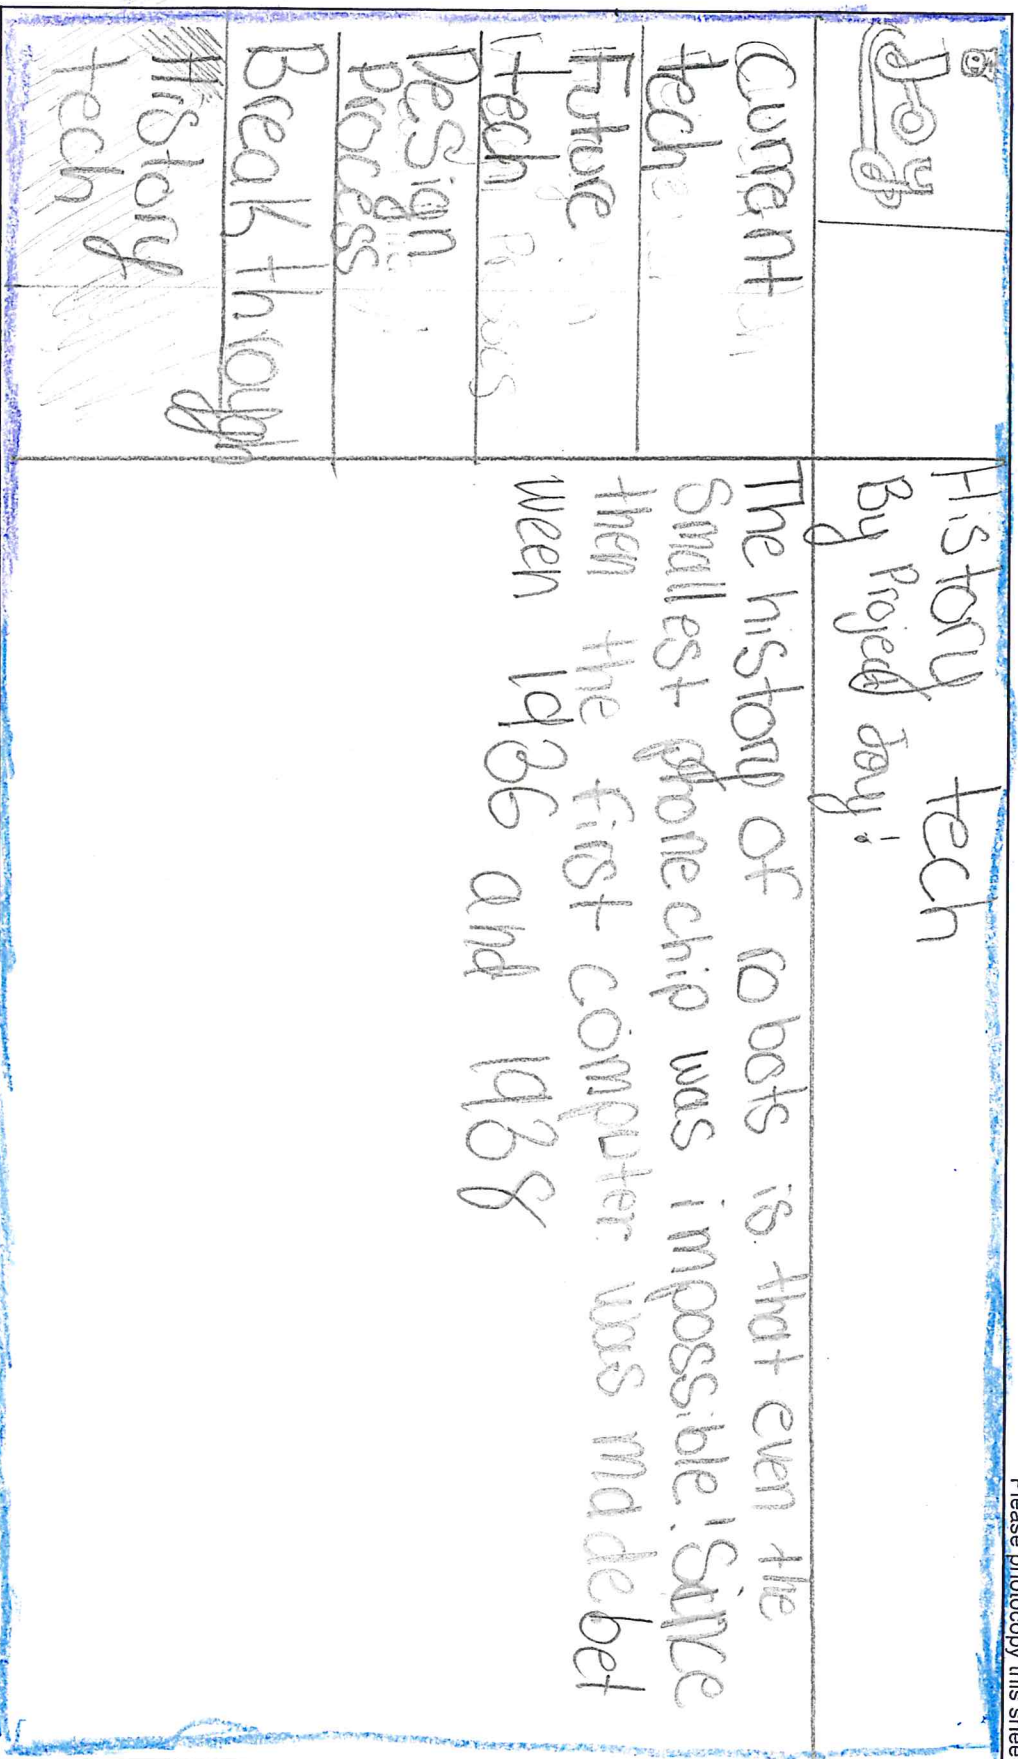 Please photocopy this shee
Joy
History tech
By Project Joy!
Current
tech
Future
tech
Design
process
Break through
History
tech
The history of robots is that even the
Smallest phone chip was impossible! Since
then the first computer was made bet
ween 1936 and 1938